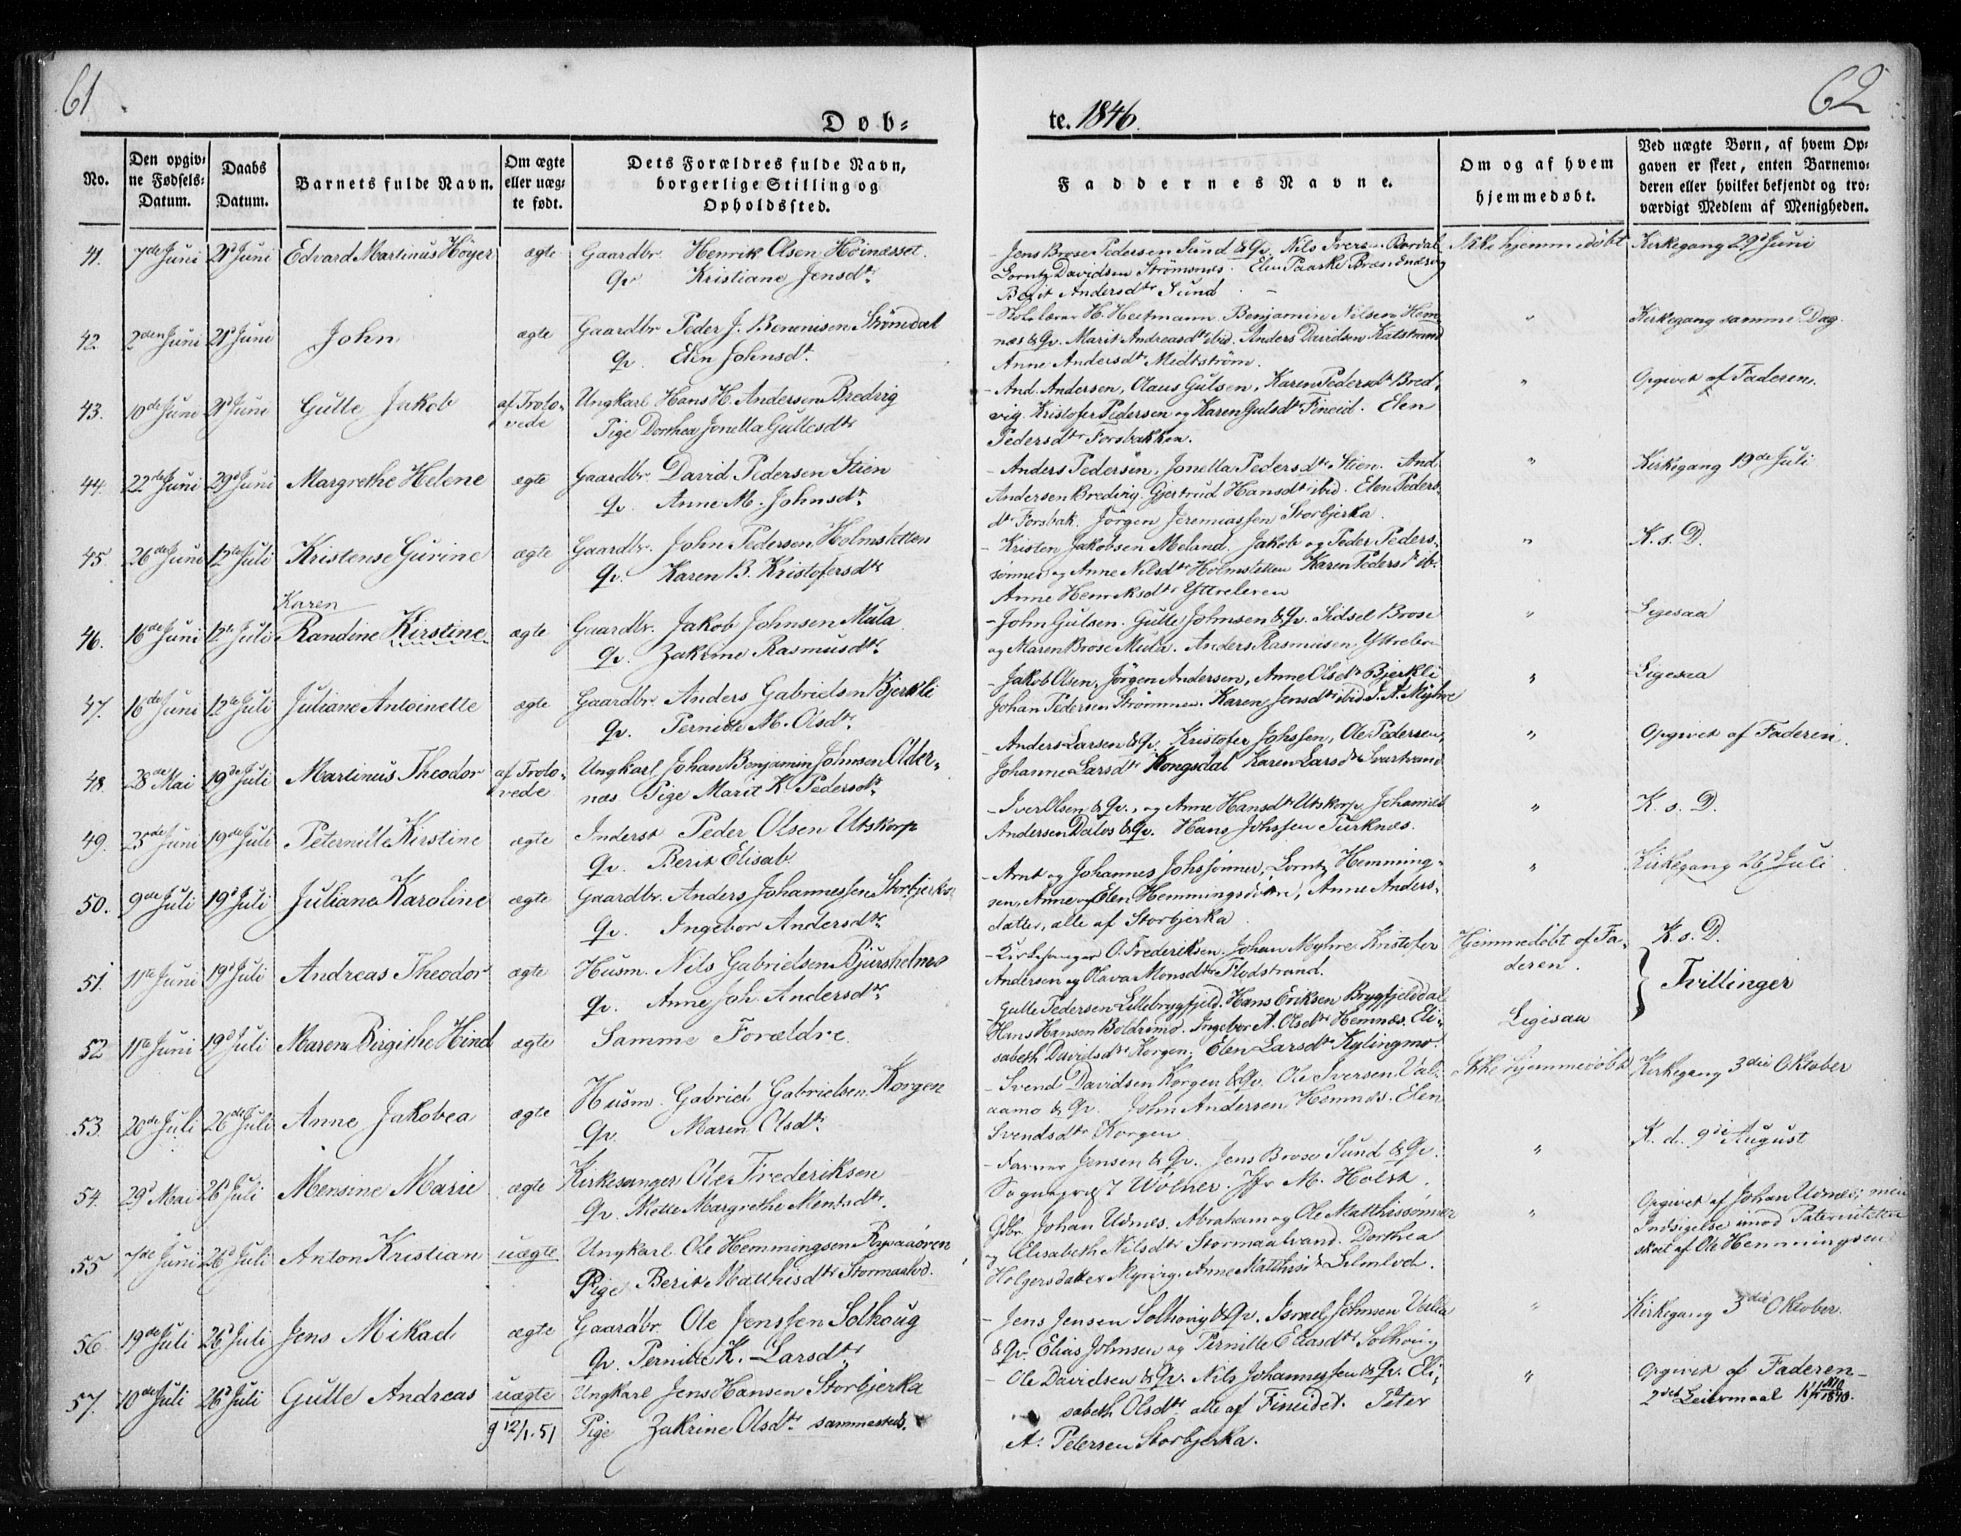 61
62
Døb=
te. 1846.
No.
Den opgiv=
ne Fødsels=
Datum.
Daabs
Datum.
Barnets fulde Navn.
Om ægte
eller uæg=
te født.
Dets Forældres fulde Navn,
borgerlige Stilling og
Opholdssted.
Faddernes Navne.
Om og af hvem
hjemmedøbt.
Ved uægte Børn, af hvem Op=
gaven er skeet, enten Barnemo=
deren eller hvilket bekjendt og tro=
værdigt Medlem af Menigheden.
41. 7de Juni 21d Juni Edvard Martinus Höyer ægte Gaardbr. Henrik Olsen Höinesset.
Qv. Kristiane Jensdtr.
- Jens Brose Pedersen Sund & Qv. Nils Iversen
Lorntz Davidsen Strömsnes. Elen Paaske
Berit Andersdtr Sund.
Ikke hjemmedöbt
Kirkegang 29d Juni
42. 2den Juni 21d Juni John ægte Gaardbr. Peder J. Benonisen Strömdal
Qv. Elen Johnsdt.
- Skolelærer H. Heitmann. Benjamin Nilsen Hem-
nes & Qv. Marit Andreasdtr ibid. Anders Davidsen
Anne Andersdtr Midtström.
"
Kirkegang samme Dag.
43. 10de Juni 21d Juni Gulle Jakob af Trolo-
vede
Ungkarl Hans H. Andersen Bredvig
Pige Dorthea Jonella Gullesdtr
- And. Andersen, Olaus Gulsen, Karen Pedersdtr Bred-
vig. Kristofer Pedersen og Karen Gulsdtr Fineid. Elen
Pedersdtr Forsbakken.
"
Opgivet af Faderen.
44. 22de Juni 29d Juni Margrethe Helene ægte Gaardbr. David Pedersen Stien
Qv. Anne M. Johnsdtr.
- Anders Pedersen, Jonella Pedersdtr Stien. And.
Andersen Bredvig. Gjertrud Hansdtr ibid. Elen Peders-
dtr Forsbak. Jörgen Jeremiassen Storbjerka.
"
Kirkegang 19de Juli
45. 26de Juni 12te Juli Kristense Gurine ægte Gaardbr. John Pedersen Holmsletten
Qv. Karen B. Kristofersdtr
- Kristen Jakobsen Meland. Jakob og Peder Peders-
sönner og Anne Nilsdtr Holmsletten Karen Pedersdtr ib.
Anne Henriksdtr Yttreleren
"
K. s. D.
46. 16de Juni 12te Juli Karen
Randine Kirstine ægte Gaardbr. Jakob Johnsen Mula
Qv. Zakrine Rasmusdtr.
- John Gulsen. Gulle Johnsen & Qv. Sidsel Brose
og Maren Brose Mula. Anders Rasmusen Yttreleren
"
Ligesaa
47. 16de Juni 12te Juli Juliane Antoinette ægte Gaardbr. Anders Gabrielsen Bjerkli
Qv. Pernille M. Olsdtr.
- Jakob Olsen, Jörgen Andersen, Anne Olsdtr Bjerkli
Johan Pedersen Strömmen. Karen Jensdtr ibid. J. A. Myhre
"
Ligesaa
48. 28de Mai 19de Juli Martinus Theodor af Trolo-
vede
Ungkarl Johan Benjamin Johnsen Older-
næs Pige Marit K. Pedersdtr.
- Anders Larsen & Qv. Kristofer Johssen, Ole Pedersen,
Johanne Larsdtr Kongsdal Karen Larsdtr Svartvand
"
Opgivet af Faderen.
49. 25de Juni 19de Juli Peternille Kirstine ægte Inderst Peder Olsen Utskorp
Qv. Berit Elisab.
- Iver Olsen & Qv., og Anne Hansdtr Utskorp, Johannes
Andersen Dalos & Qv. Hans Johssen Turknes.
"
K. s. D.
50. 9de Juli 19d Juli Juliane Karoline ægte Gaardbr. Anders Johannessen Storbjerka
Qv. Ingebor Andersdtr
- Arnt og Johannes Johssönner, Lorntz Hemming-
sen, Anne og Elen Hemmingsdötre, Anne Anders-
datter, alle af Storbjerka.
"
Kirkegang 26d Juli
51. 11te Juni 19d Juli Andreas Theodor ægte Husm. Nils Gabrielsen Bjursholmo
Qv. Anne Joh. Andersdtr.
- Kirkesanger O. Frederiksen. Johan Myhre. Kristofer
Andersen og Olava Monsdtr Flodstrand.
Hjemmedöbt af Fa-
deren.
K. s. D.
Tvillinger
52 11te Juni 19d Juli Maren Birgithe Hind ægte Samme Forældre
- Gulle Pedersen Lillebrygfjeld. Hans Eriksen Brygfjelddal
Hans Hansen Boldermo. Ingebor A. Olsdtr Hemnæs. Eli-
sabeth Davidsdtr Korgen; Elen Larsdtr Kylingmo.
Ligesaa
53. 20de Juli 26de Juli Anne Jakobea ægte Husm. Gabriel Gabrielsen Korgen
Qv. Maren Olsdtr.
- Svend Davidsen Korgen & Qv. Ole Iversen Val-
aamo & Qv. John Andersen Hemnes. Elen
Svendsdtr Korgen
Ikke hjemmedöbt
Kirkegang 3die Oktober
54. 29d Mai 26d Juli Mensine Marie ægte Kirkesanger Ole Frederiksen
Qv. Mette Margrethe Mentsdtr.
- Farver Jensen & Qv. Jens Brose Sund & Qv.
Sogneprest Wolner. Jfr M. Holst.
"
K. d. 9de August
55 7de Juni 26d Juli Anton Kristian uægte Ungkarl Ole Hemmingsen Ryvaaören
Pige Berit Matthisdtr Stormaalvd.
Gdbr. Johan Udnes. Abraham og Ole Matthissönner
og Elisabeth Nilsdtr Stormaalvand. Dorthea
Holgersdatter Myrvig. Anne Matthisdtr
"
Opgivet af Johan Udnes; men
Indsigelse imod Paterniteten
skeet af Ole Hemmingsen
56. 19de Juli 26d Juli Jens Mikael ægte Gaardbr. Ole Jenssen Solhoug
Qv. Pernille K. Larsdtr.
- Jens Jensen Solhoug & Qv. Israel Johnsen
& Qv. Elias Johnsen og Pernille Eliasdtr Solhoug
"
Kirkegang 3die Oktober.
57. 10de Juli 26d Juli Gulle Andreas uægte Ungkarl Jens Hansen Storbjerka
g 12/1. 51 Pige Zakrine Olsdtr. sammesteds.
- Ole Davidsen & Qv. Nils Johannessen & Qv. Eli-
sabeth Olsdtr. alle af Fineidet. Peter
A. Petersen Storbjerka.
"
Opgivet af Faderen -
2det Leiermaal